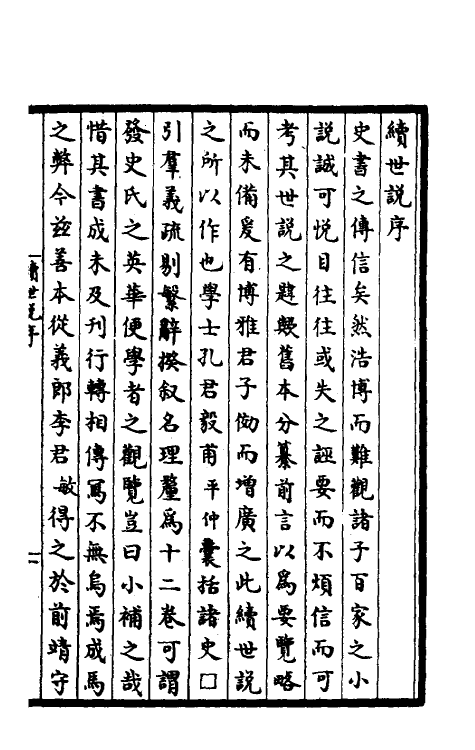 續世說序
史書之傳信矣然浩博而難觀諸子百家之小
說誠可悅目往往或失之誣要而不煩信而可
考其世說之題歟舊本分纂前言以為要覽略
而未備爰有博雅君子而增廣之此續世說
之所以作也學士孔君毅甫平仲囊括諸史□
引羣義疏剔繁辭揆叙名理釐為十二卷可謂
發史氏之英華便學者之觀覽豈曰小補之哉
惜其書成未及刊行轉相傳寫不無烏焉成馬
之弊今茲善本從義郎李君敏得之於前靖守
續世說序
一